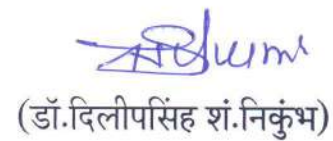 (डॉ.दिलीपसिंह शं.निकुंभ)